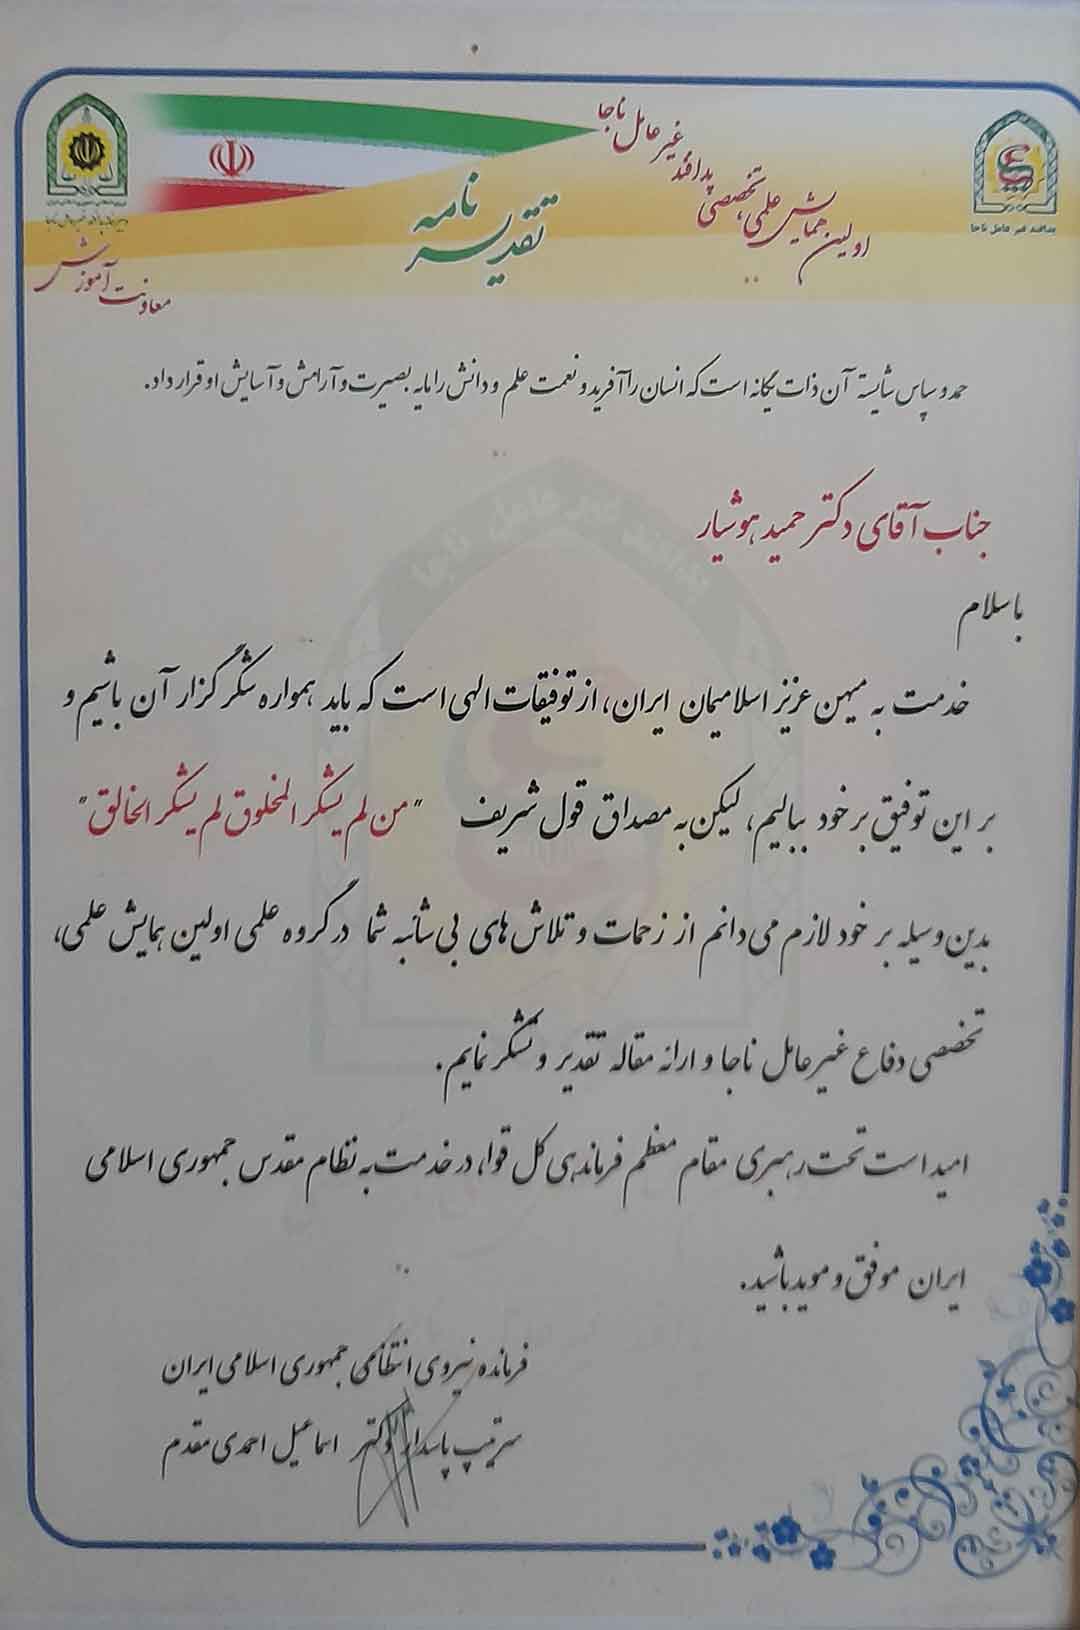 اولین همایش علمی، تخصصی پدافند غیر عامل ناجا
تقدیر نامه
معاونت آموزش
پدافند غیر عامل ناجا
حمد و سپاس شایسته آن ذات یگانه است که انسان را آفرید و نعمت علم و دانش را مایه بصیرت و آرامش و آسایش او قرار داد.
جناب آقای دکتر حمید هوشیار
با سلام
خدمت به میهن عزیز اسلامیمان ایران، از توفیقات الهی است که باید همواره شکرگزار آن باشیم و
بر این توفیق بر خود ببالیم، لیکن به مصداق قول شریف "من لم یشکر المخلوق لم یشکر الخالق"
بدین وسیله بر خود لازم می دانم از زحمات و تلاش های بی شائبه شما در گروه علمی اولین همایش علمی،
تخصصی دفاع غیر عامل ناجا و ارائه مقاله تقدیر و تشکر نمایم.
امید است تحت رهبری مقام معظم فرماندهی کل قوا، در خدمت به نظام مقدس جمهوری اسلامی
ایران موفق و موید باشید.
فرمانده نیروی انتظامی جمهوری اسلامی ایران
سرتیپ پاسدار دکتر اسماعیل احمدی مقدم
پدافند غیر عامل ناجا